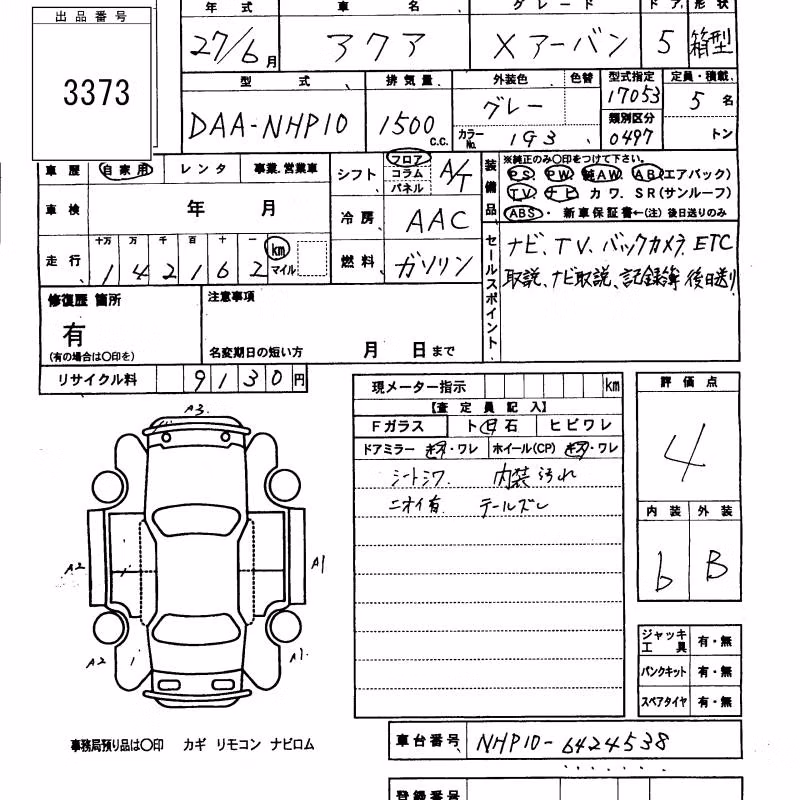 出品番号
3373
年式 車名 グレード ドア 形状
27/6月 アクア Xアーバン 5 箱型
型式 排気量 外装色 色替 型式指定 定員・積載
DAA-NHP10 1500 C.C. グレー 17053 5名
カラーNo. 1G3 類別区分 0497 トン
車歴 自家用 レンタ 事業.営業車
シフト フロア コラム パネル A/T
装備品 ※純正のみ○印をつけて下さい。
PS. PW. 純AW. AB(エアバック)
TV. ナビ カワ. SR(サンルーフ)
ABS・ 新車保証書←(注) 後日送りのみ
車検 年 月
冷房 AAC
走行 十万 万 千 百 十 一 km マイル
142162
燃料 ガソリン
セールスポイント
ナビ、TV、バックカメラ、ETC
取説、ナビ取説、記録簿 後日送り
修復歴 箇所
有
(有の場合は○印を)
注意事項
名変期日の短い方 月 日まで
リサイクル料 9130円
現メーター指示 km
【査定員記入】
Fガラス ト日石 ヒビワレ
ドアミラー キズ・ワレ ホイール(CP) キズ・ワレ
シートシワ 内装汚れ
ニオイ有 テールズレ
評価点
4
内装 外装
b B
A3.
A2 A1
A2 A1.
ジャッキ工具 有・無
パンクキット 有・無
スペアタイヤ 有・無
事務局預り品は○印 カギ リモコン ナビロム
車台番号 NHP10-6424538
登録番号